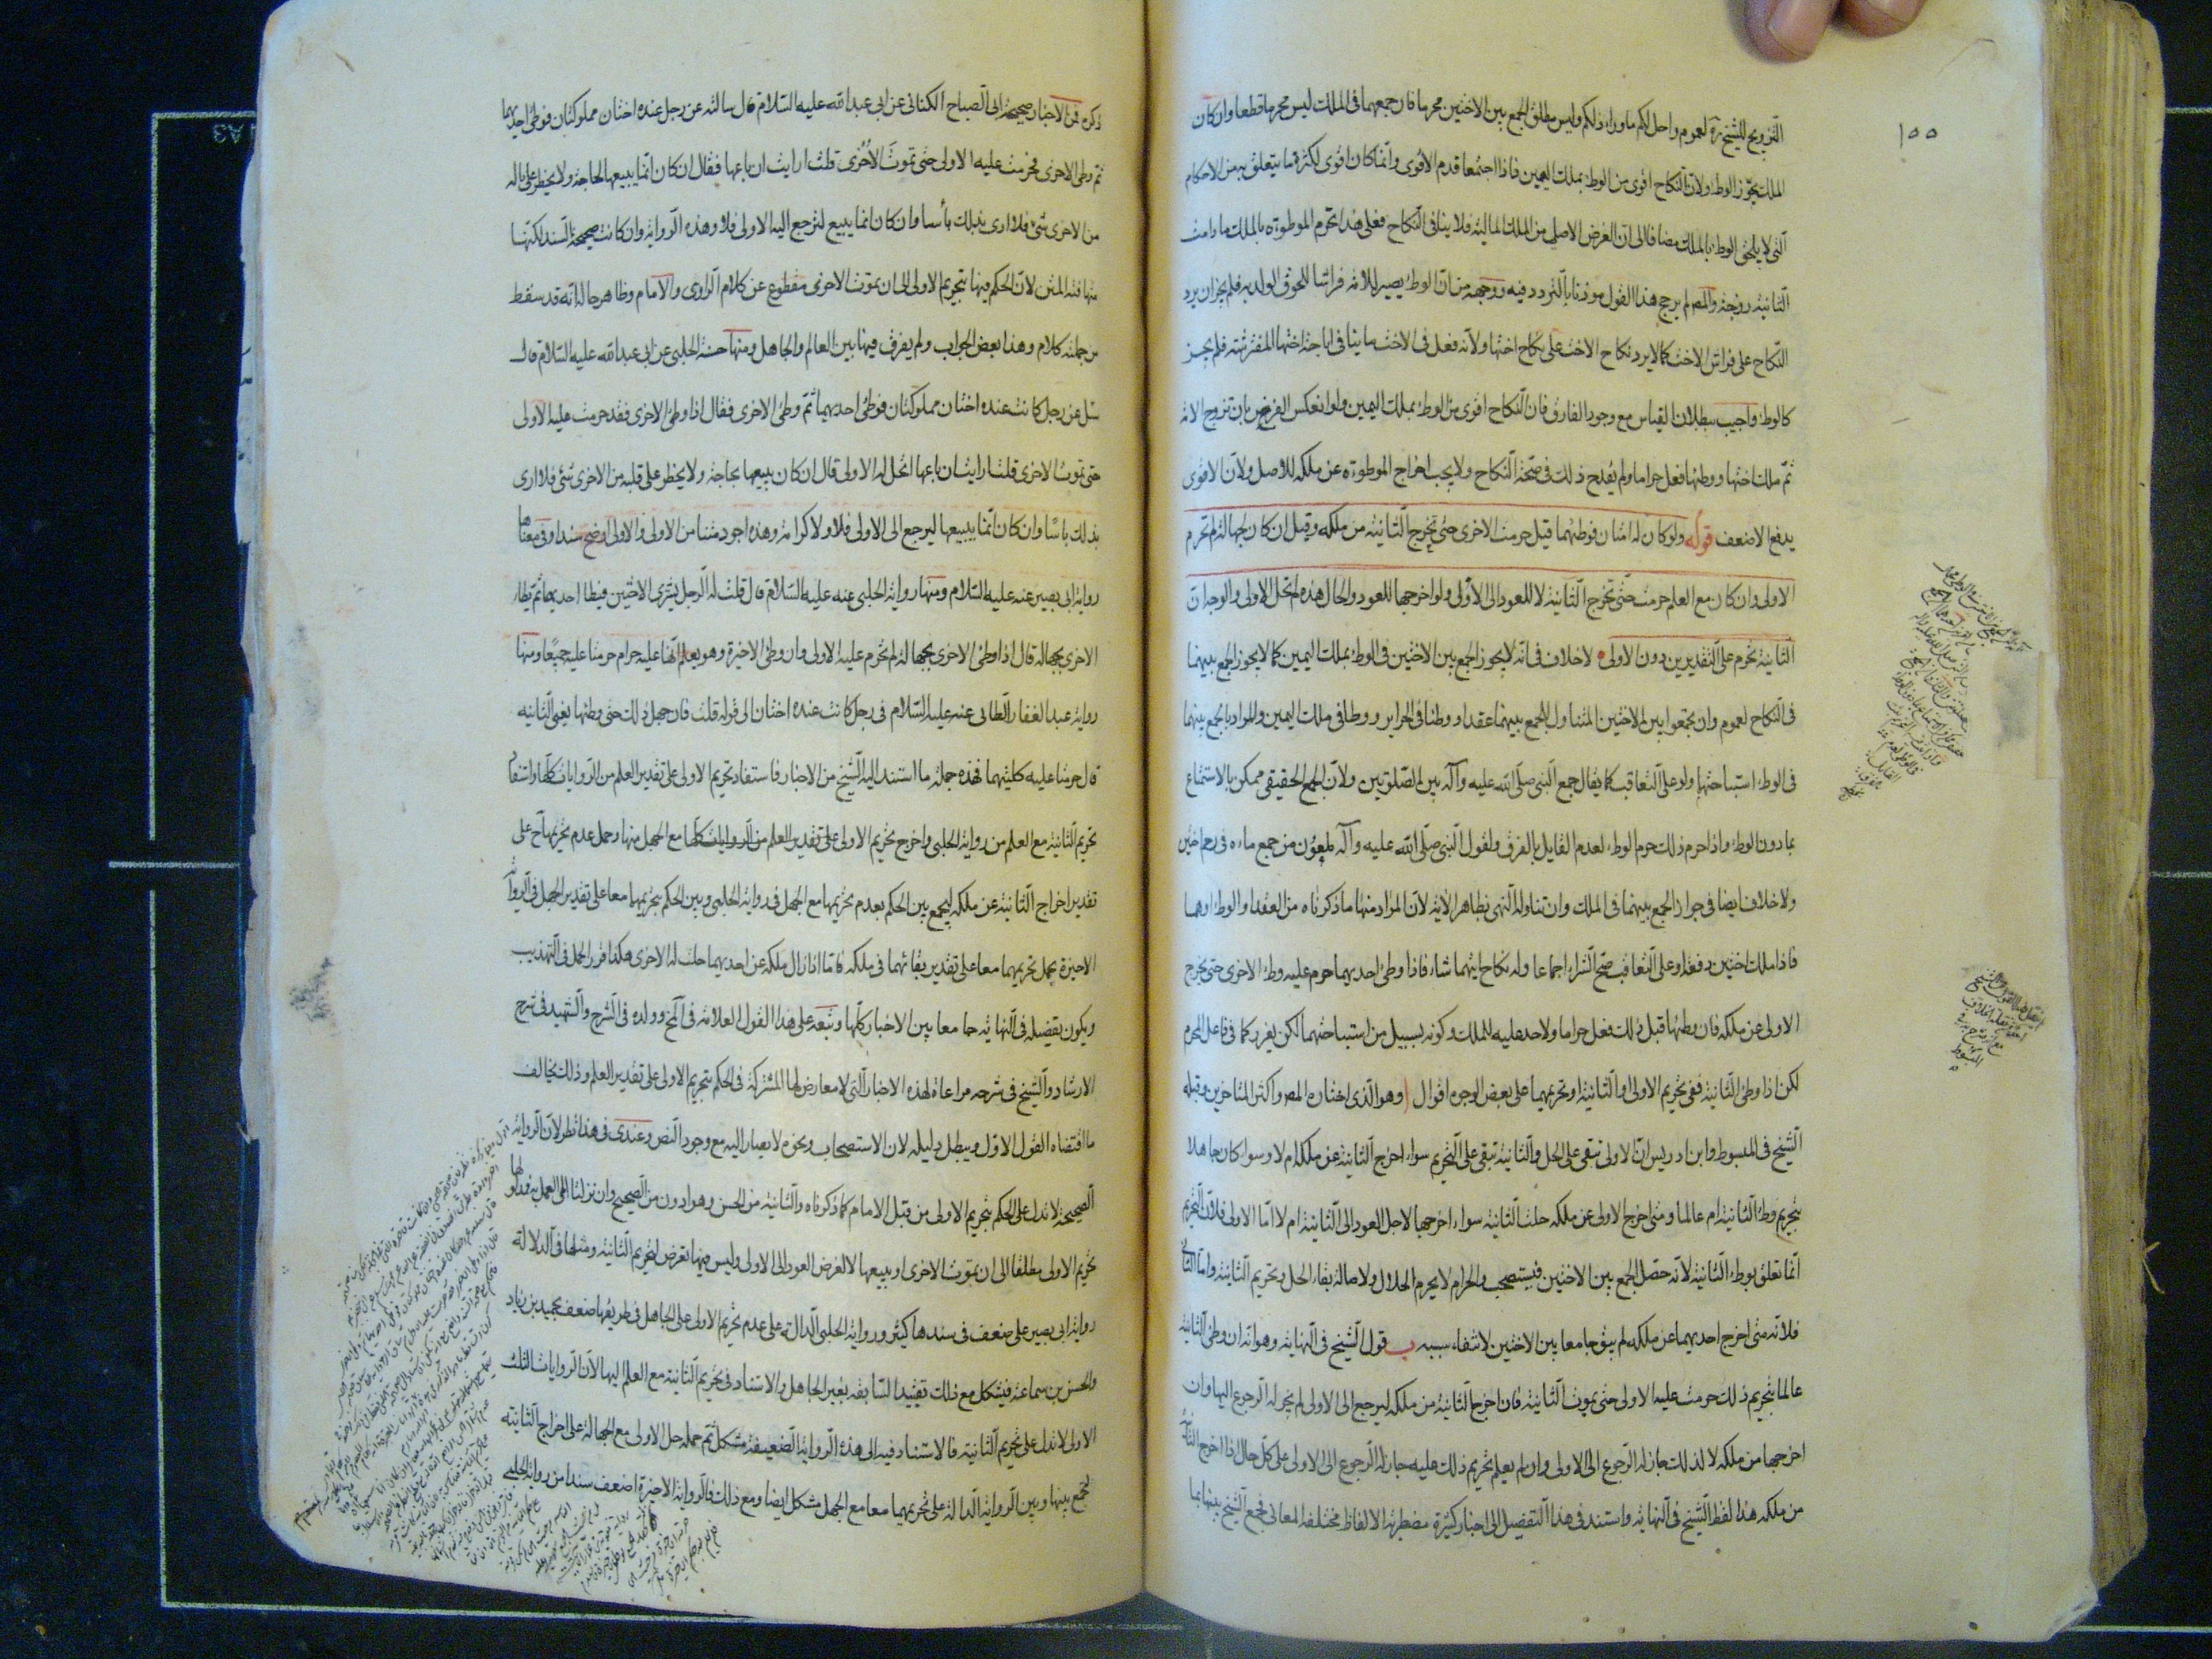 ١٥٥
التزويج للشيخ ره لعموم واحل لكم ما وراء ذلكم وليس مطلق الجمع بين الاختين محرما فان جمعهما فى الملك ليس محرما قطعا وان كان
الملك يجوز الوطء ولان النكاح اقوى من الوطء بملك اليمين فاذا اجتمعا قدم الاقوى وانما كان اقوى لكثرة ما يتعلق به من الاحكام
التى لا يلحق الوطء بالملك مضافا الى ان الغرض الاصلى من الملك المالية فلا ينافى النكاح فعلى هذا تحرم الموطوءة بالملك ما دامت
الثانية زوجة والمصر لم يرجح هذا القول موذنا بالتردد فيه ووجهه من ان الوطء يصير للامة فراشا للحوق الولد به فلم يجز ان يرد
النكاح على فراش الاخت كما لا يرد نكاح الاخت على نكاح اختها ولانه فعل فى الاخت ما ينافى اباحة اختها المفترشة فلم يجز
كالوطء واجيب ببطلان القياس مع وجود الفارق فان النكاح اقوى من الوطء بملك اليمين ولو انعكس الفرض بان تزوج الامة
ثم ملك اختها ووطئها فعل حراما ولم يقدح ذلك فى صحة النكاح ولا يجب اخراج الموطوءة عن ملكه للاصل ولان الاقوى
يدفع الاضعف قوله ولو كان له امتان فوطئهما قيل حرمت الاخرى حتى تخرج الثانية من ملكه وقيل ان كان لجهالة لم تحرم
الاولى وان كان مع العلم حرمت حتى تخرج الثانية لا للعود الى الاولى ولو اخرجها للعود والحال هذه لم تحل الاولى والوجه ان
الثانية تحرم على التقديرين دون الاولى لا خلاف فى انه لا يجوز الجمع بين الاختين فى الوطء بملك اليمين كما لا يجوز الجمع بينهما
فى النكاح لعموم وان تجمعوا بين الاختين المتناول للجمع بينهما عقدا ووطئا فى الحراير ووطئا فى ملك اليمين والمراد بالجمع بينهما
فى الوطء استباحتهما ولو على التعاقب كما يقال جمع النبى صلى الله عليه وآله بين الصلوتين ولان الجمع الحقيقى ممكن بالاستمتاع
بما دون الوطء واذا حرم ذلك حرم الوطء لعدم القايل بالفرق ولقول النبى صلى الله عليه وآله ملعون من جمع ماءه فى رحم اختين
ولا خلاف ايضا فى جواز الجمع بينهما فى الملك وان تناوله النهى بظاهر الاية لان المراد منها ما ذكرناه من العقد او الوطء او هما
فاذا ملك اختين دفعة او على التعاقب صح الشراء اجماعا وله نكاح ايتهما شاء فاذا وطئ احديهما حرم عليه وطء الاخرى حتى يخرج
الاولى عن ملكه فان وطئها قبل ذلك فعل حراما ولا حد عليه للملك وكونه بسبيل من استباحتهما لكن يعزر كما فى فاعل المحرم
لكن اذا وطئ الثانية ففى تحريم الاولى او الثانية او تحريمهما على بعض الوجوه اقوال ا وهو الذى اختاره المصر واكثر المتاخرين وقبله
الشيخ فى المبسوط وابن ادريس ان الاولى تبقى على الحل والثانية تبقى على التحريم سواء اخرج الثانية عن ملكه ام لا وسواء كان جاهلا
بتحريم وطء الثانية ام عالما ومتى اخرج الاولى عن ملكه حلت الثانية سواء اخرجها لاجل العود الى الثانية ام لا اما الاولى فلان التحريم
انما تعلق بوطء الثانية لانه حصل الجمع بين الاختين فيستصحب والحرام لا يحرم الحلال ولاصالة بقاء الحل وتحريم الثانية واما الثانى
فلانه متى اخرج احديهما عن ملكه لم يبق جامعا بين الاختين لانتفاء سببه ب قول الشيخ فى النهاية وهو انه ان وطئ الثانية
عالما بتحريم ذلك حرمت عليه الاولى حتى يموت الثانية فان اخرج الثانية من ملكه ليرجع الى الاولى لم يجز له الرجوع اليها وان
اخرجها من ملكه لا لذلك جاز له الرجوع الى الاولى وان لم يعلم تحريم ذلك عليه جاز له الرجوع الى الاولى على كل حال اذا اخرج الثانية
من ملكه هذا لفظ الشيخ فى النهاية واستند فى هذا التفصيل الى اخبار كثيرة مضطربة الالفاظ مختلفة المعانى فجمع الشيخ بينها بما
ذكره فمن الاخبار صحيحة ابى الصباح الكنانى عن ابى عبد الله عليه السلام قال سالته عن رجل عنده اختان مملوكتان فوطئ احديهما
ثم وطئ الاخرى فحرمت عليه الاولى حتى تموت الاخرى قلت ارايت ان باعها فقال ان كان انما يبيعها لحاجة ولا يخطر على باله
من الاخرى شئ فلا ارى بذلك بأسا وان كان انما يبيع لترجع اليه الاولى فلا وهذه الرواية وان كانت صحيحة السند لكنها
متهافتة المتن لان الحكم فيها بتحريم الاولى الى ان يموت الاخرى مقطوع عن كلام الراوى والامام وظاهر حاله انه قد سقط
من جملته كلام وهذا بعض الجواب ولم يفرق فيها بين العالم والجاهل ومنها حسنة الحلبى عن ابى عبد الله عليه السلام قال
سئل عن رجل كانت عنده اختان مملوكتان فوطئ احديهما ثم وطئ الاخرى فقال اذا وطئ الاخرى فقد حرمت عليه الاولى
حتى تموت الاخرى قلت ارايت ان باعها اتحل له الاولى قال ان كان يبيعها لحاجة ولا يخطر على قلبه من الاخرى شئ فلا ارى
بذلك باسا وان كان انما يبيعها ليرجع الى الاولى فلا ولا كرامة وهذه اجود متنا من الاولى والاولى اوضح سندا وفى معناها
رواية ابى بصير عنه عليه السلام ومنها رواية الحلبى عنه عليه السلام قال قلت له الرجل يشترى الاختين فيطا احديهما ثم يطأ
الاخرى بجهالة قال اذا وطئ الاخرى بجهالة لم تحرم عليه الاولى وان وطئ الاخيرة وهو يعلم انها عليه حرام حرمتا عليه جميعا ومنها
رواية عبد الغفار الطائى عنه عليه السلام فى رجل كانت عنده اختان الى قوله قلت فان جهل ذلك حتى وطئها يعنى الثانية
قال حرمتا عليه كلتيهما فهذه جملة ما استند اليه الشيخ من الاخبار فاستفاد تحريم الاولى على تقدير العلم من الروايات كلها واستفاد
تحريم الثانية مع العلم من رواية الحلبى واخرج تحريم الاولى على تقدير العلم من الروايات كلها مع الجهل منها وحمل عدم تحريمها ح على
تقدير اخراج الثانية عن ملكه ليجمع بين الحكم بعدم تحريمها مع الجهل فى رواية الحلبى وبين الحكم بتحريمهما معا على تقدير الجهل فى الرواية
الاخيرة بحمل تحريمهما معا على تقدير بقائهما فى ملكه فاما اذا زال ملكه عن احديهما حلت له الاخرى هكذا قرر الحمل فى التهذيب
ويكون تفصيله فى النهاية جامعا بين الاخبار كلها وتبعه على هذا القول العلامة فى المخ وولده فى الشرح والشهيد فى شرح
الارشاد والشيخ فى شرحه مراعاة لهذه الاخبار التى لا معارض لها المشتركة فى الحكم بتحريم الاولى على تقدير العلم وذلك يخالف
ما اقتضاه القول الاول ويبطل دليله لان الاستصحاب ونحوه لا يصار اليه مع وجود النص وعندى فى هذا نظر لان الرواية
الصحيحة لا تدل على الحكم بتحريم الاولى من قبل الامام كما ذكرناه والثانية من الحسن وهو ادون من الصحيح وان نزلنا الى العمل به فمدلولها
تحريم الاولى مطلقا الى ان يموت الاخرى او يبيعها لا لغرض العود الى الاولى وليس فيها تعرض لتحريم الثانية ومثلها فى الدلالة
رواية ابى بصير على ضعف فى سندها كثير ورواية الحلبى الدالة على عدم تحريم الاولى على الجاهل فى طريقها ضعف بحميد بن زياد
والحسن بن سماعة فيشكل مع ذلك تقييد السابقة بغير الجاهل والاستناد فى تحريم الثانية مع العلم اليها لان الروايات الثلث
الاولى لا تدل على تحريم الثانية فالاستناد فيه الى هذه الرواية الضعيفة مشكل ثم حمله حل الاولى مع الجهالة على اخراج الثانية
لتجمع بينها وبين الرواية الدالة على تحريمهما معا مع الجهل مشكل ايضا ومع ذلك فالرواية الاخيرة اضعف سندا من رواية الحلبى